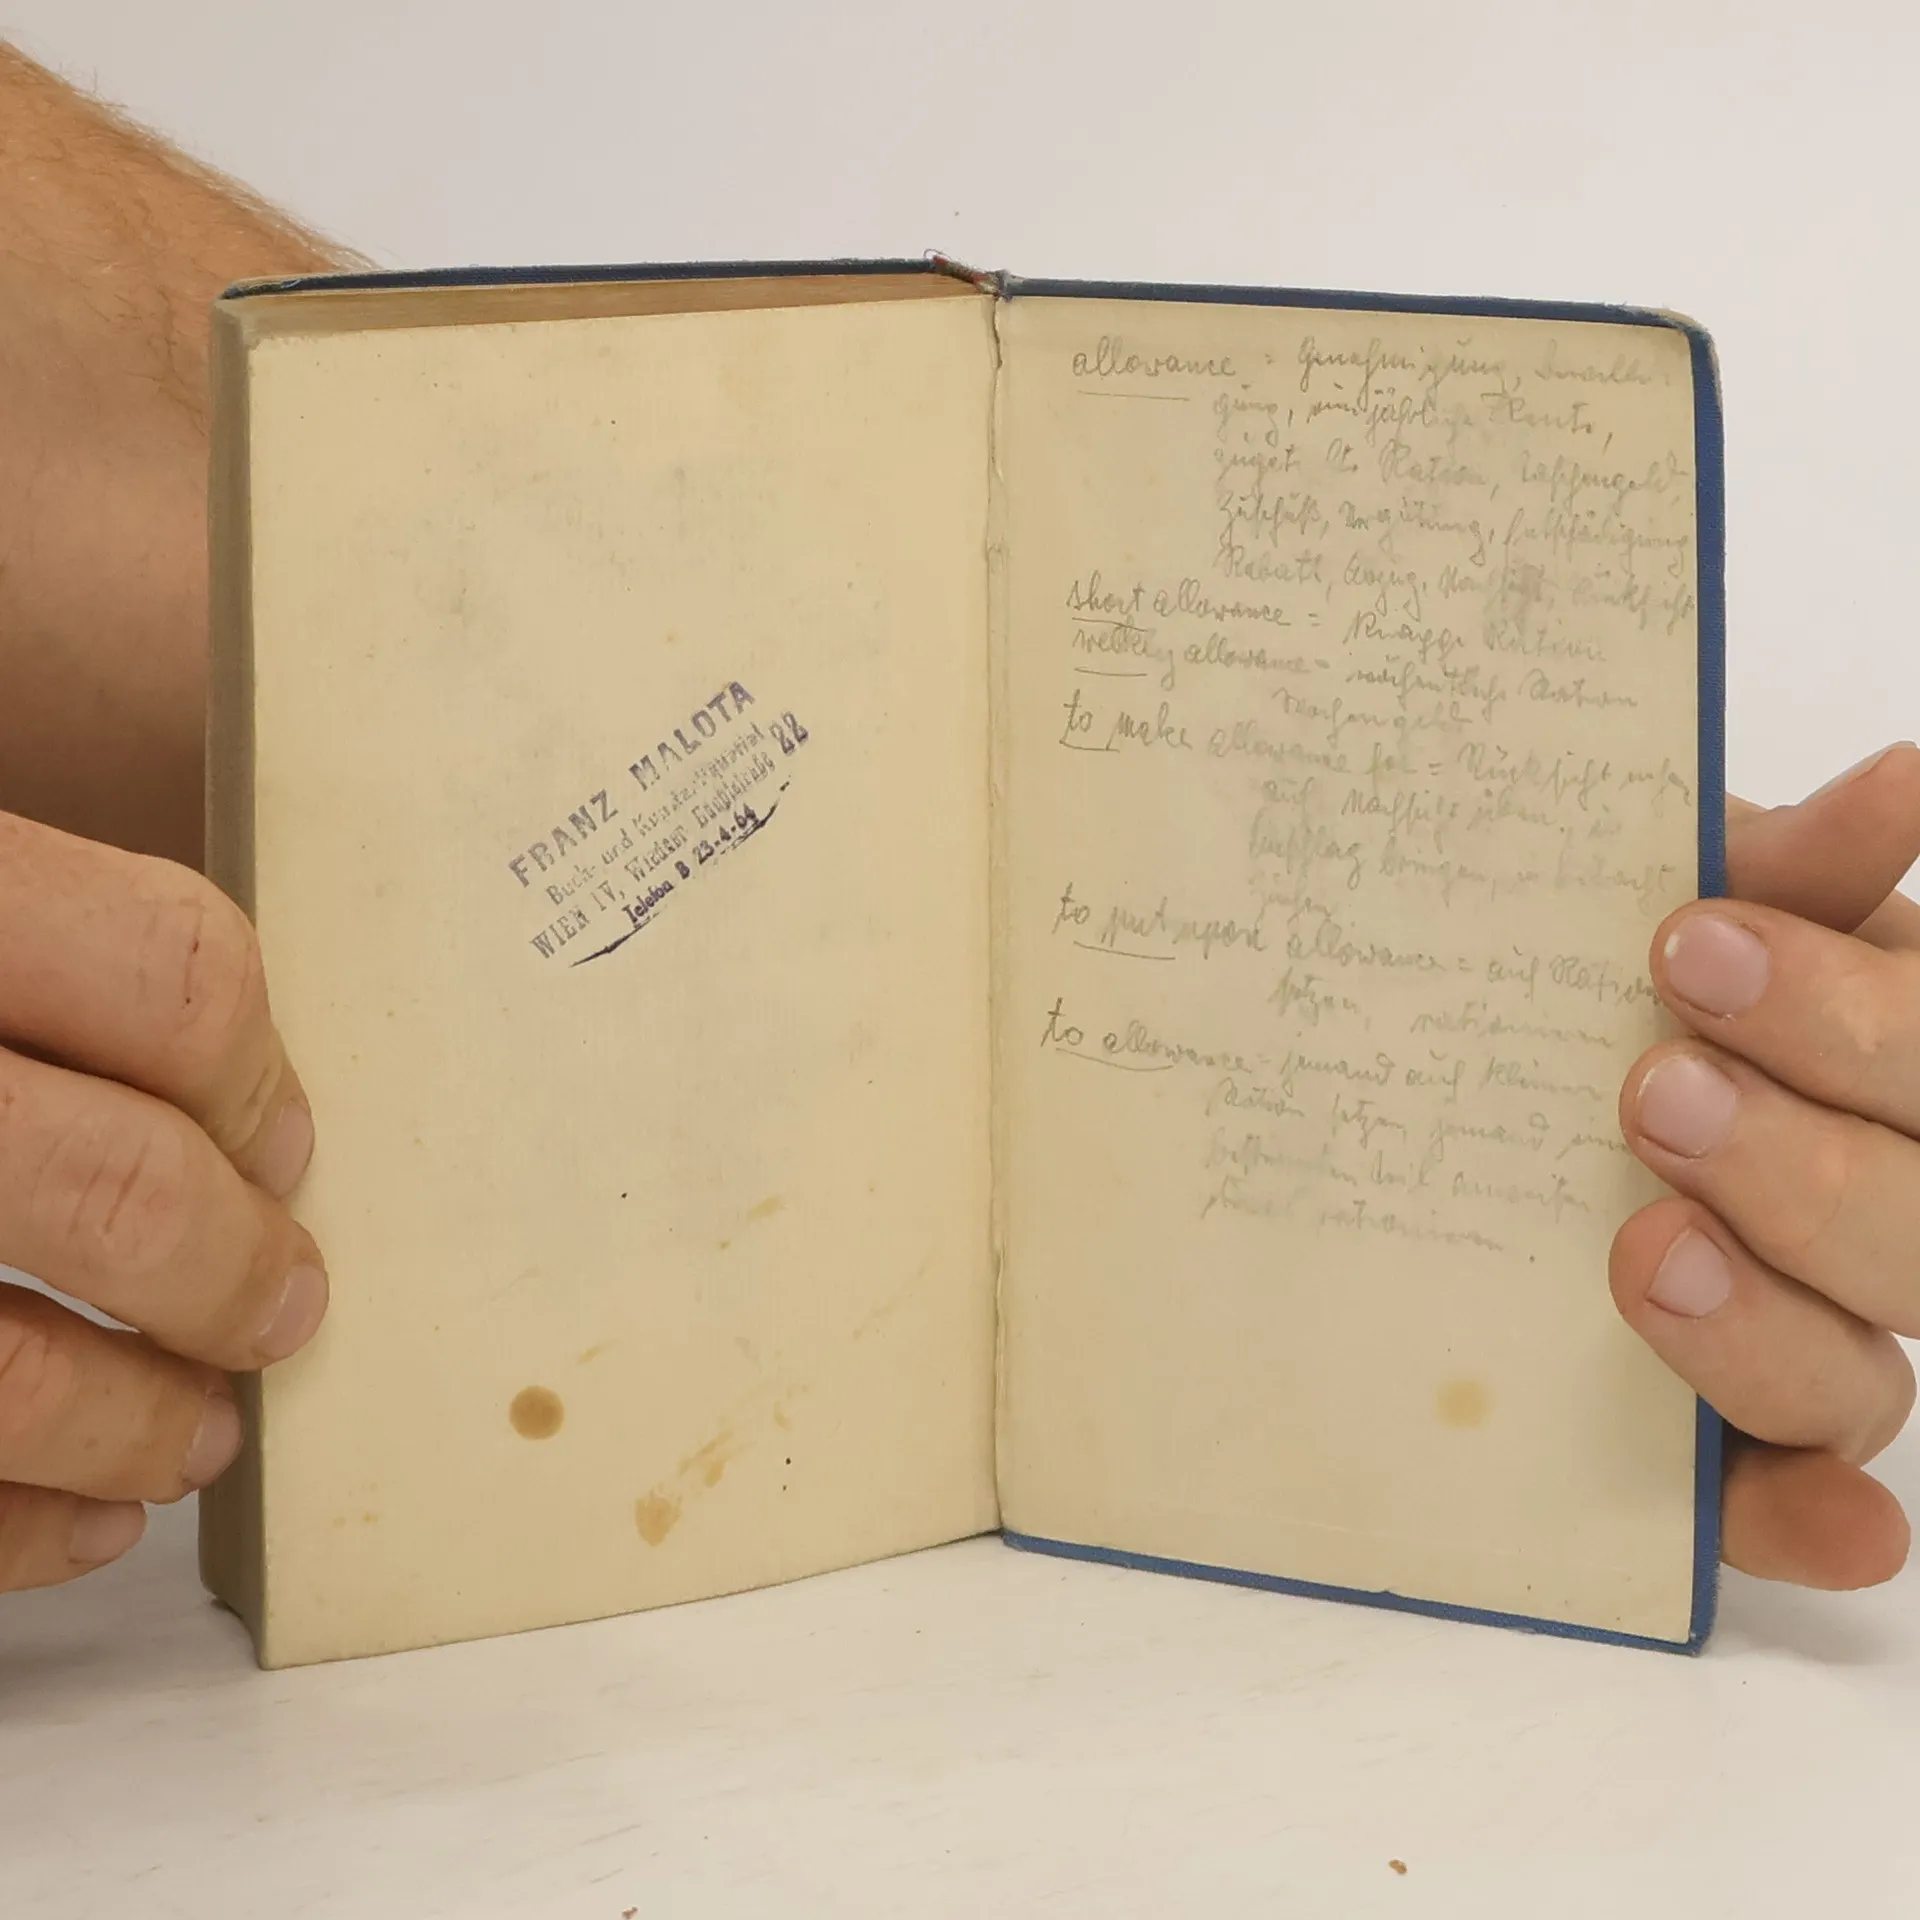 FRANZ MALOTA
Buch- und Kunstantiquariat
WIEN IV, Wiedner Hauptstraße 22
Telefon B 23-4-64
allowance = Genehmigung, Bewilli-
gung, ein jährliche Rente,
zuget. Ration, Taschengeld,
Zuschuß, Vergütung, Entschädigung
Rabatt, Abzug, Nachsicht, Rücksicht
short allowance = knappe Ration
weekly allowance = wöchentliche Ration
Wochengeld
to make allowance for = Rücksicht nehmen
auf Nachsicht üben, in
Anschlag bringen, in Betracht
ziehen
to put upon allowance = auf Ration
setzen, rationieren
to allowance = jemand auf kleine
Ration setzen jemand einen
bestimmten Teil anweisen
rationieren.